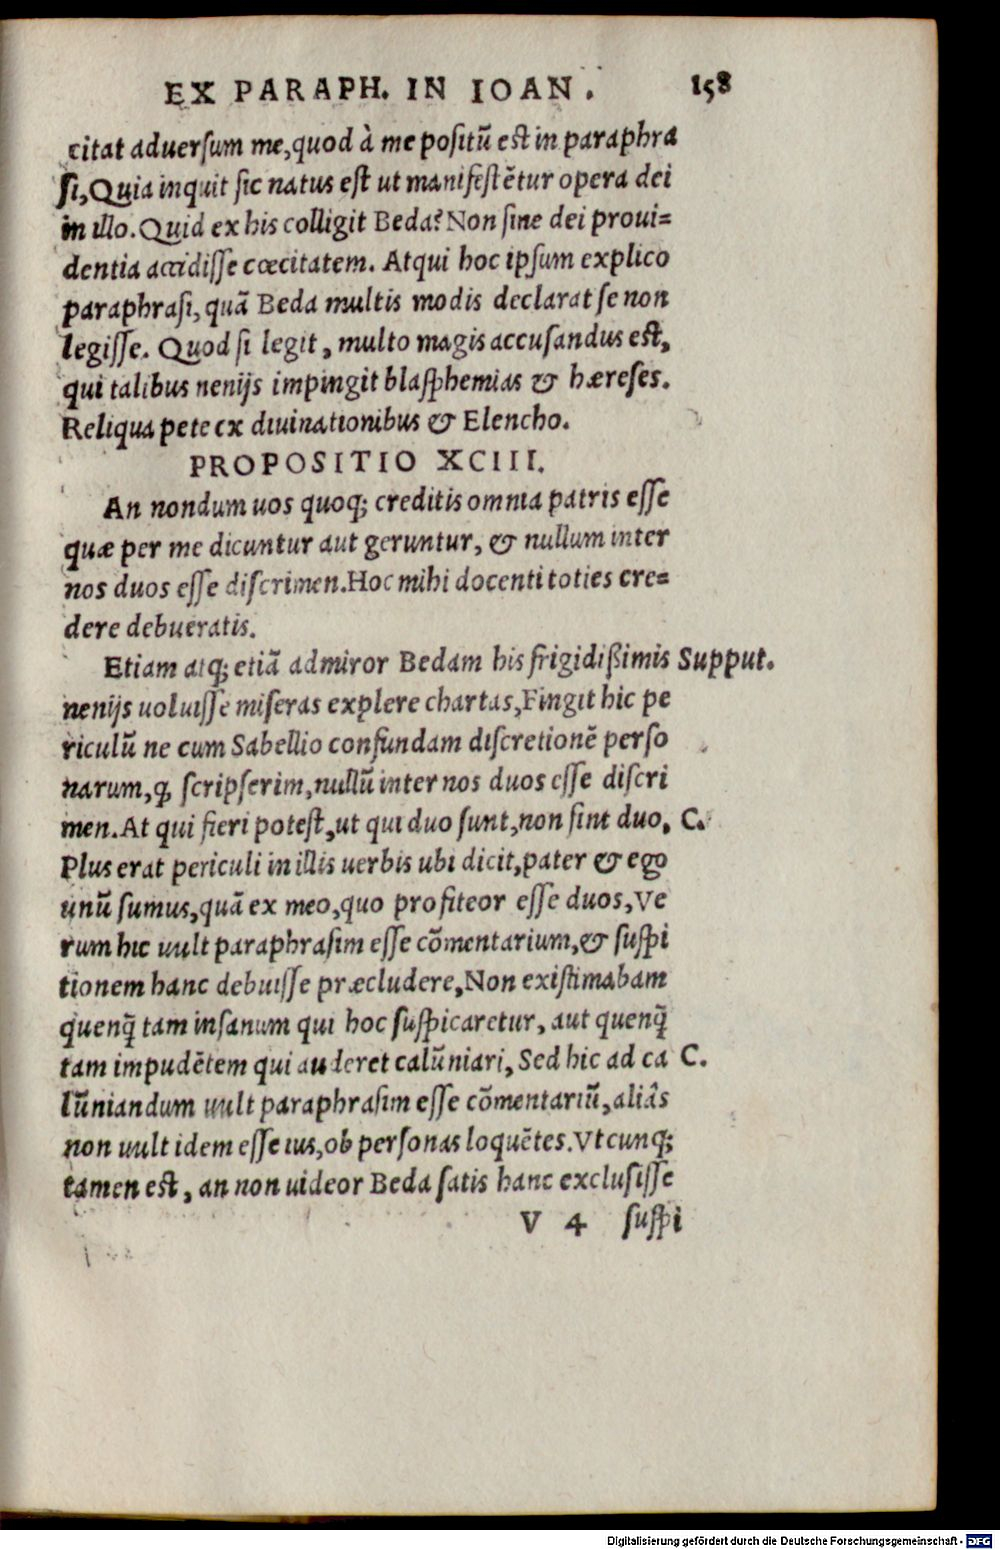 EX PARAPH. IN IOAN. 158
citat aduersum me,quod à me positũ est in paraphra
si,Quia inquit sic natus est ut manifestẽtur opera dei
in illo.Quid ex his colligit Beda? Non sine dei proui=
dentia accidisse cœcitatem. Atqui hoc ipsum explico
paraphrasi, quã Beda multis modis declarat se non
legisse. Quod si legit, multo magis accusandus est,
qui talibus nenijs impingit blasphemias & hæreses.
Reliqua pete ex diuinationibus & Elencho.
PROPOSITIO XCIII.
An nondum uos quoq; creditis omnia patris esse
quæ per me dicuntur aut geruntur, & nullum inter
nos duos esse discrimen.Hoc mihi docenti toties cre=
dere debueratis.
Etiam atq; etiã admiror Bedam his frigidißimis Supput.
nenijs uoluisse miseras explere chartas,Fingit hic pe
riculũ ne cum Sabellio confundam discretionẽ perso
narum,ꝙ scripserim,nullũ inter nos duos esse discri
men.At qui fieri potest,ut qui duo sunt,non sint duo, C.
Plus erat periculi in illis uerbis ubi dicit,pater & ego
unũ sumus,quã ex meo,quo profiteor esse duos,Ve
rum hic uult paraphrasim esse cõmentarium,& suspi
tionem hanc debuisse præcludere,Non existimabam
quenq̃ tam insanum qui hoc suspicaretur, aut quenq̃
tam impudẽtem qui auderet calũniari, Sed hic ad ca C.
lũniandum uult paraphrasim esse cõmentariũ,aliâs
non uult idem esse ius,ob personas loquẽtes.Vtcunq;
tamen est, an non uideor Beda satis hanc exclusisse
V 4 suspi
Digitalisierung gefördert durch die Deutsche Forschungsgemeinschaft - DFG